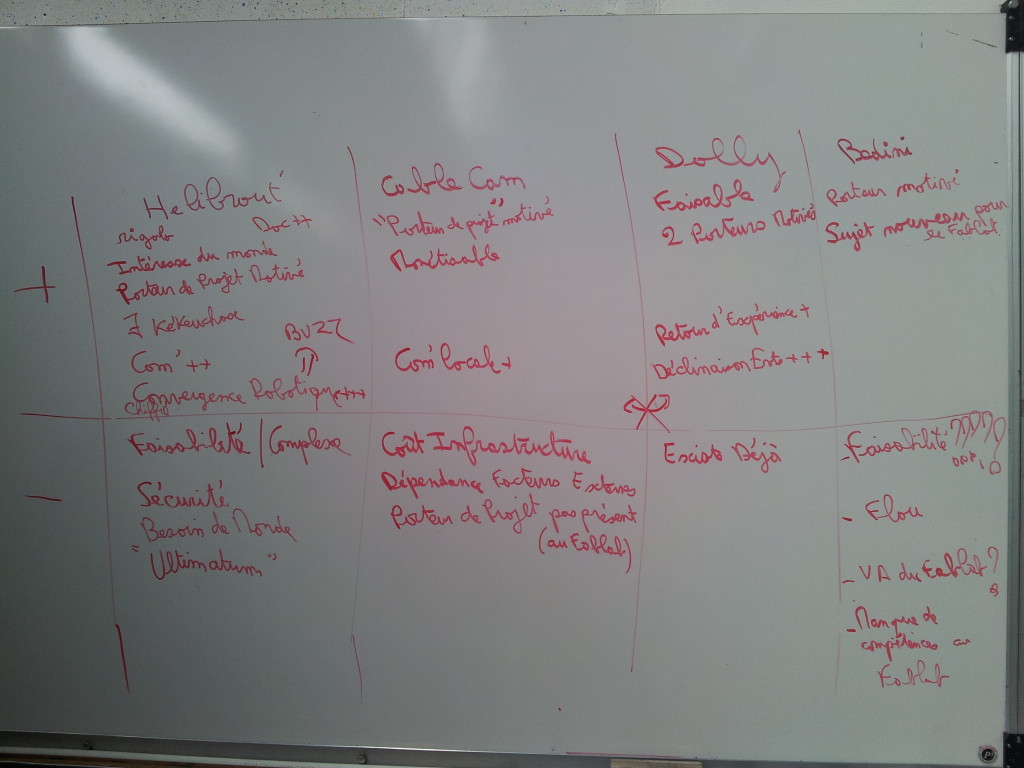 Helibrouť
rigolo Doc++
Intéresse du monde
Porteur de Projet Motivé
∃ KéKeuchose
BUZZ
Com' ++
Convergence Robotique+++
Cable Cam
"Porteur de projet" motivé
Monétisable
Com' local +
Dolly
Faisable
2 Porteurs Motivés
Retour d'Expérience +
Déclinaison Ent +++
Bedini
Porteur motivé
Sujet nouveau pour
le Fablab.
+
-
Faisabilité / Complexe
Sécurité
Besoin de Monde
"Ultimatum"
Coût Infrastructure
Dépendance Facteurs Externes
Porteur de Projet pas présent
(au Fablab)
Existe Déjà
- Faisabilité ????
- Flou
- VA du Fablab ?
- Manque de
compétences au
Fablab